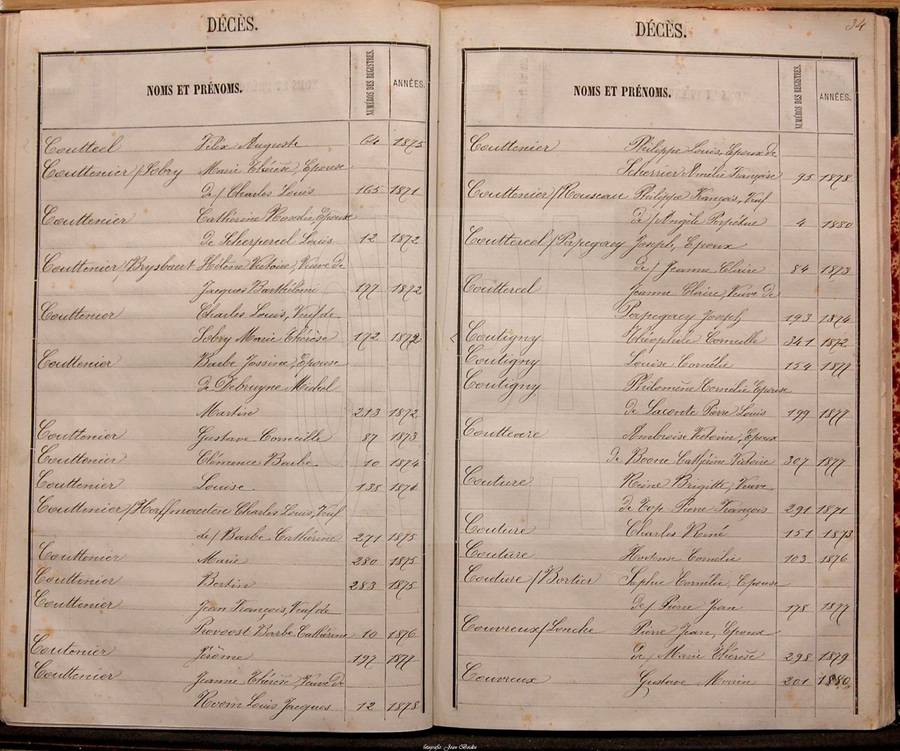 DÉCÈS.
NOMS ET PRÉNOMS. NUMÉROS DES REGISTRES. ANNÉES.
Coutteel Félix Auguste 64 1875
Couttenier /Sobry Marie Thérèse, Epouse
de/ Charles Louis 165 1871
Couttenier Cathérine Rosalie, Epouse
de Scherpereel Louis 12 1872
Couttenier /Brysbaert Hélène Victoire, Veuve de
Jacques Barthélémi 177 1872
Couttenier Charles Louis, Veuf de
Sobry Marie Thérèse 172 1872
Couttenier Barbe Jossine, Epouse
de Debruyne Michel
Martin 213 1872
Couttenier Gustave Corneille 87 1873
Couttenier Clémence Barbe 10 1874
Couttenier Louise 138 1874
Couttenier / Charles Louis, Veuf
de/ Barbe Cathérine 271 1875
Couttenier Marie 280 1875
Couttenier Bertin 283 1875
Couttenier Jean François, Veuf de
Provoost Barbe Cathérine 10 1876
Coutenier Jérôme 197 1877
Couttenier Jeanne Thérèse, Veuve de
Room Louis Jacques 12 1878
34
DÉCÈS.
NOMS ET PRÉNOMS. NUMÉROS DES REGISTRES. ANNÉES.
Couttenier Philippe Louis, Epoux de
Scherrier Amélie Françoise 95 1878
Couttenier /Rouseau Philippe François, Veuf
de/ Angèle Perpétue 4 1880
Couttereel /Papegaey Joseph, Epoux
de/ Jeanne Claire 84 1873
Couttereel Jeanne Claire, Veuve de
Papegaey Joseph 193 1874
Coutigny Théophile Corneille 341 1872
Coutigny Louise Cornélie 154 1877
Coutigny Philomène Cornélie, Epouse
de Laconte Pierre Louis 199 1877
Ambroise Victorin, Epoux
de Boone Cathérine Victoire 307 1877
Couture Reine Brigitte, Veuve
de Top Pierre François 291 1871
Couture Charles René 151 1873
Couture Cornélie 103 1876
Couture /Bortier Sophie Cornélie, Epouse
de/ Pierre Jean 178 1877
Couvreux/Lonche Pierre Jean, Epoux
de Marie Thérèse 298 1879
Couvreux Gustave 201 1880
fotografie Jean Beckx